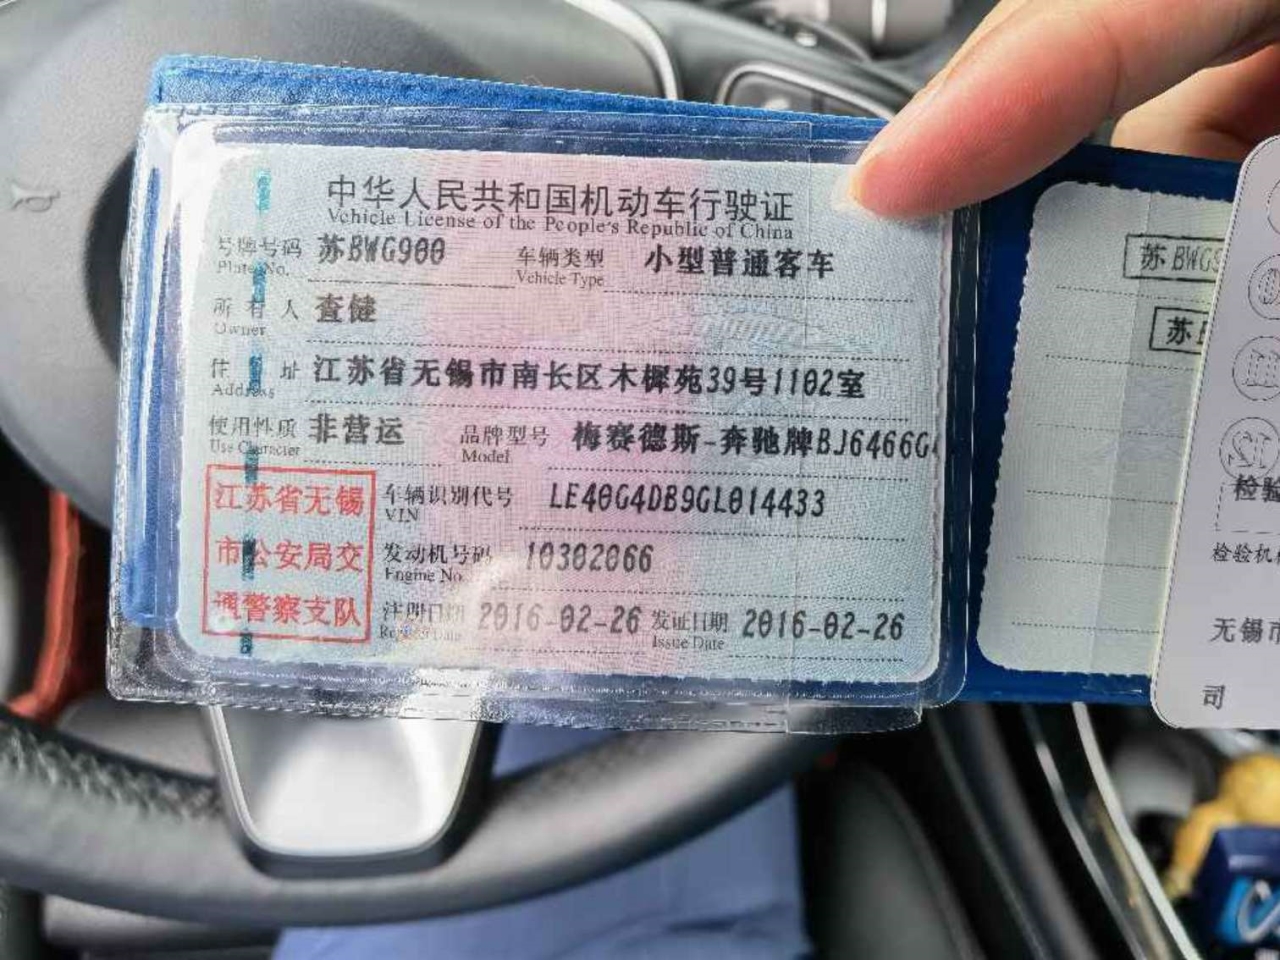 中华人民共和国机动车行驶证
Vehicle License of the People's Republic of China
号牌号码 苏BWG900 车辆类型 小型普通客车
Plate No. Vehicle Type
所有人 查健
Owner
住址 江苏省无锡市南长区木樨苑39号1102室
Address
使用性质 非营运 品牌型号 梅赛德斯-奔驰牌BJ6466G
Use Character Model
江苏省无锡
市公安局交
通警察支队
车辆识别代号 LE40G4DB9GL014433
VIN
发动机号码 10302066
Engine No.
注册日期 2016-02-26 发证日期 2016-02-26
Register Date Issue Date
苏BWG9
苏B
检验
检验机
无锡市
司